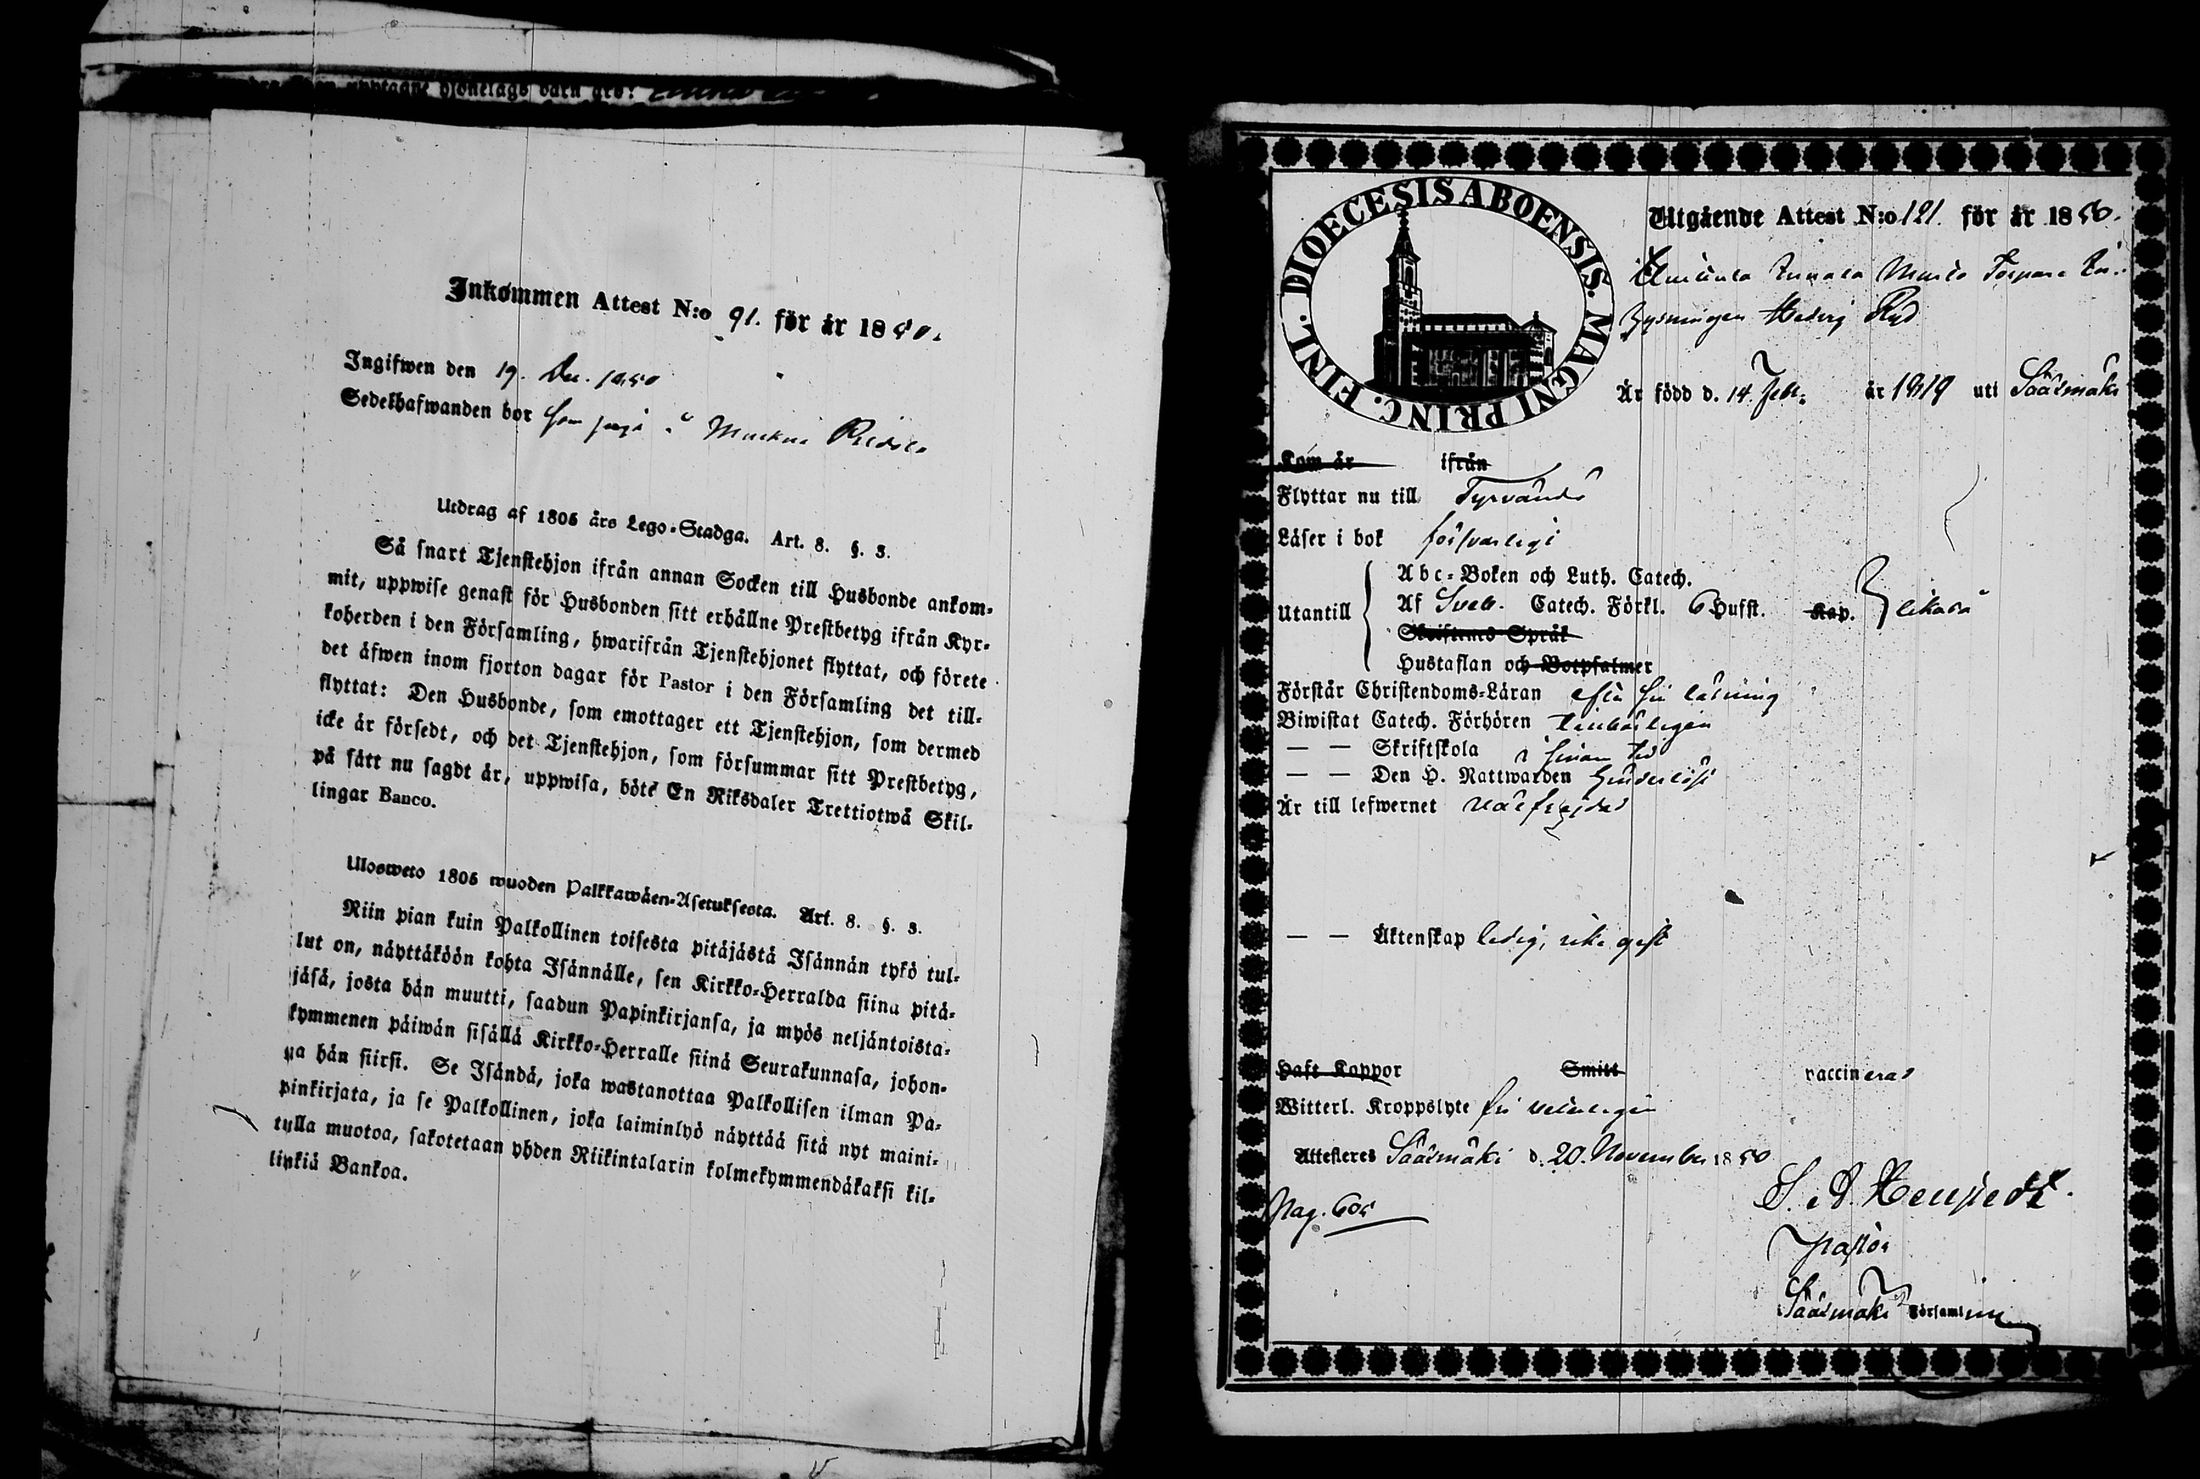 upptagne hjonelags barn
Inkommen Attest N:o 91. för år 1850.
Ingifwen den 19. Dec. 1850
Sedelhafwanden bor som piga
Utdrag af 1805 års Lego-Stadga. Art. 8. §. 3.
Så snart Tjenstehjon ifrån annan Socken till Husbonde ankom-
mit, uppwise genast för Husbonden sitt erhållne Prestbetyg ifrån Kyr-
koherden i den Församling, hwarifrån Tjenstehjonet flyttat, och förete
det äfwen inom fjorton dagar för Pastor i den Församling det till-
flyttat: Den Husbonde, som emottager ett Tjenstehjon, som dermed
icke är försedt, och det Tjenstehjon, som försummar sitt Prestbetyg,
på sätt nu sagdt är, uppwisa, böte En Riksdaler Trettiotwå Skil-
lingar Banco.
Ulosweto 1805 wuoden Palkkawäen-Asetuksesta. Art. 8. §. 3.
Niin pian kuin Palkollinen toisesta pitäjästä Isännän tykö tul-
lut on, näyttäköön kohta Isännälle, sen Kirkko-Herralda siinä pitä-
jäsä, josta hän muutti, saadun Papinkirjansa, ja myös neljäntoista-
kymmenen päiwän sisällä Kirkko-Herralle siinä Seurakunnasa, johon-
ga hän siirsi. Se Isändä, joka wastanottaa Palkollisen ilman Pa-
pinkirjata, ja se Palkollinen, joka laiminlyö näyttää sitä nyt maini-
tulla muotoa, sakotetaan yhden Riikintalarin kolmekymmendäkaksi kil-
linkiä Bankoa.
DIOECESIS ABOENSIS. MAGNI PRINC. FINL.
Utgående Attest N:o 121. för år 1850.
Hedvig
Är född d. 14 Feb. år 1819 uti Sääsmäki
Kom år ifrån
Flyttar nu till Tyrvändö
Läser i bok försvarligt
Abc-Boken och Luth. Catech.
Utantill Af Sveb. Catech. Förkl. 6 Hufst. Kap. likaså
Skriftenes Språk
Hustaflan och Botpsalmer
Förstår Christendoms-Läran efter sin läsning
Biwistat Catech. Förhören
— — Skriftskola i sinom tid
— — Den H. Nattwarden
Är till lefwernet välfrejdad
— — Äktenskap ledig, icke gift
Haft Koppor Smitt vaccinerad
Witterl. Kroppslyte fri
Attesteres Sääsmäki d. 20. November 1850
Pag. 605
S. A.
Pastor
i Sääsmäki Församling